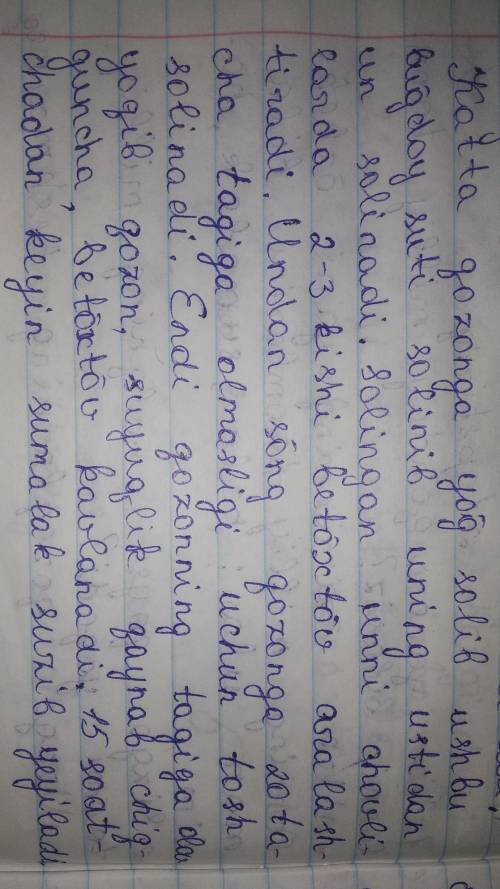 Katta qozonga yōg solib ushbu
buğdoy suti solinib uning ustidan
un solinadi. Solingan unni chovli-
larda 2-3 kishi betōxtōv aralash-
tiradi. Undan sōng qozonga 20 ta-
cha tagiga olmasligi uchun tosh
solinadi. Endi qozonning tagiga
yoqib qozon, suyuqlik qaynab chiq-
guncha betōxtōv kavlanadi, 15 soat-
chadan keyin sumalak suzib yeyiladi